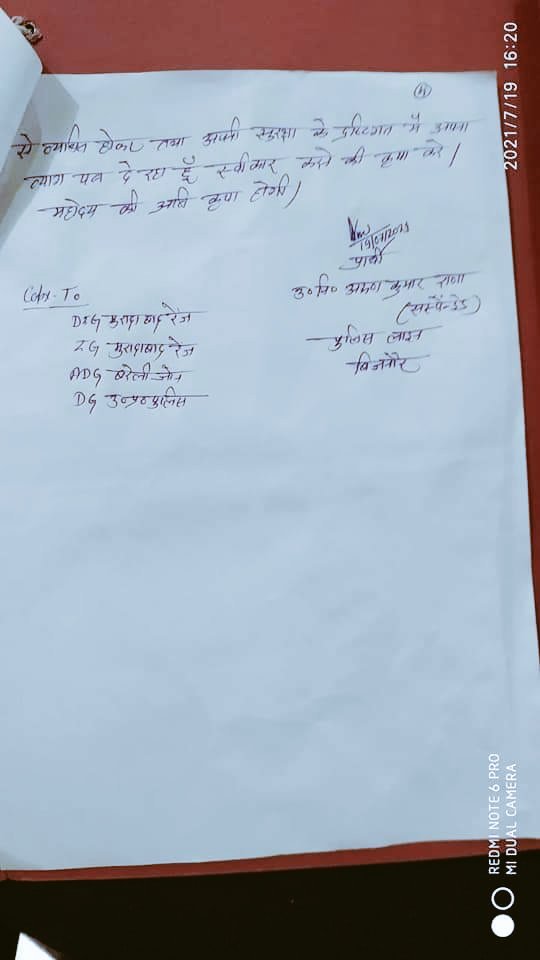 (4)
से व्यथित होकर तथा अपनी सुरक्षा के दृष्टिगत मैं अपना
त्याग पत्र दे रहा हूँ स्वीकार करने की कृपा करे।
महोदय की अति कृपा होगी।
19/07/2021
प्रार्थी
उ०नि० अरुण कुमार राणा
(सस्पैन्डेड)
पुलिस लाइन
बिजनौर
Copy To
DIG मुरादाबाद रेंज
IG मुरादाबाद रेंज
ADG बरेली जोन
DG उ०प्र० पुलिस
2021/7/19 16:20
REDMI NOTE 6 PRO
MI DUAL CAMERA